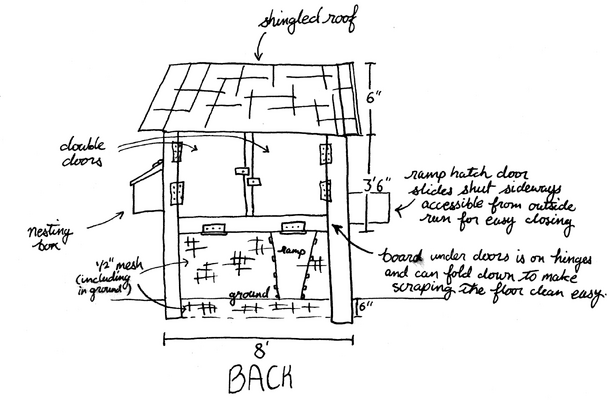 shingled roof
6"
double
doors
3'6"
ramp hatch door
slides shut sideways
accessible from outside
run for easy closing
nesting
box
1/2" mesh
(including
in ground)
ramp
board under doors is on hinges
and can fold down to make
scraping the floor clean easy.
ground
6"
8'
BACK